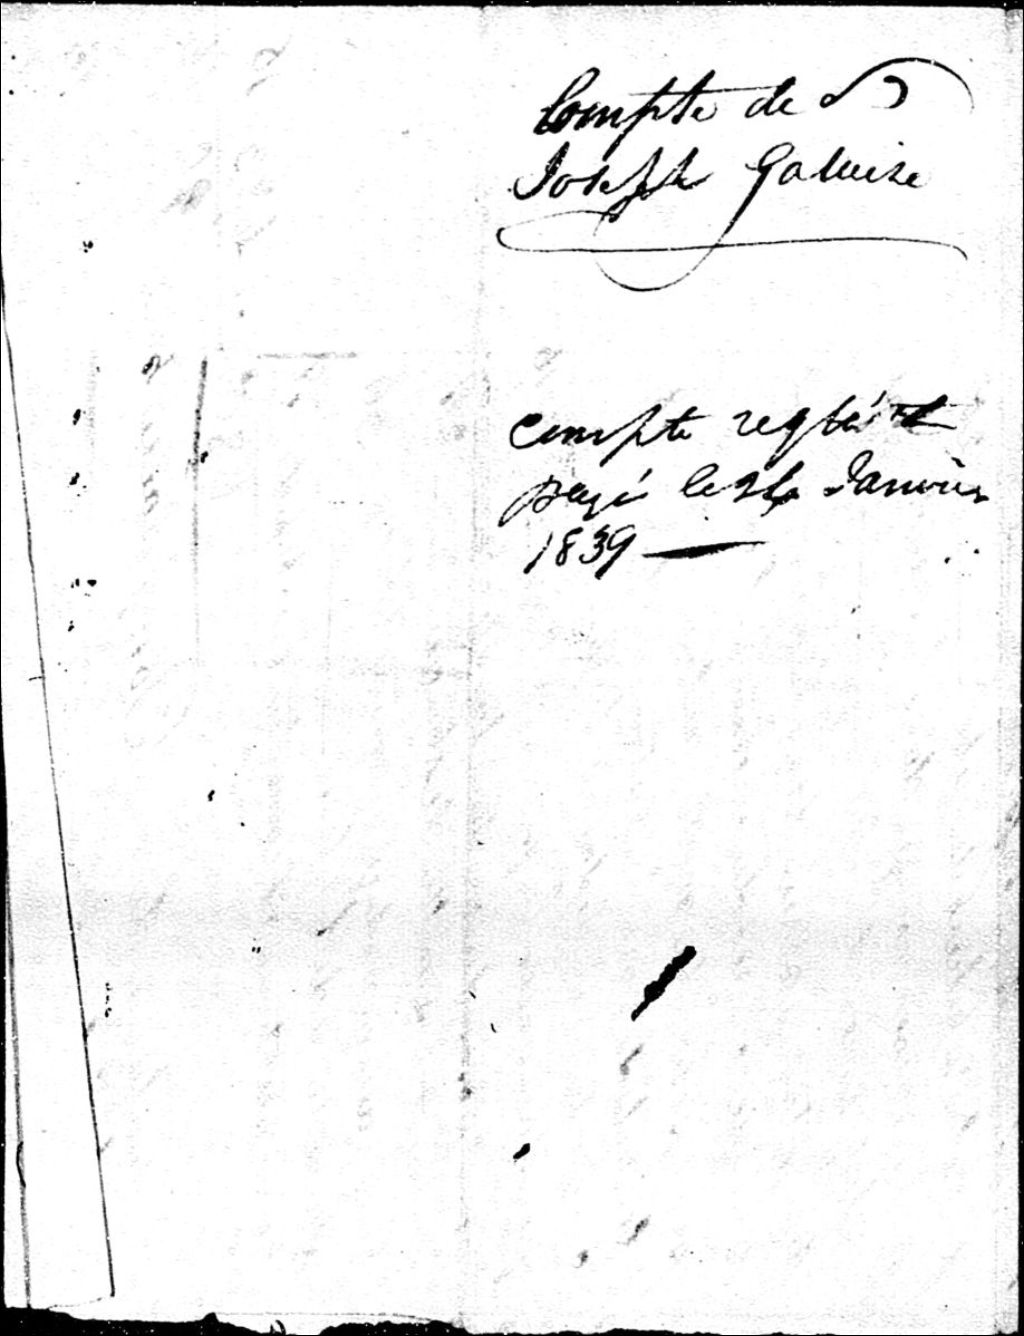 Compte de
Joseph
compte reglé et
payé le Janvier
1839